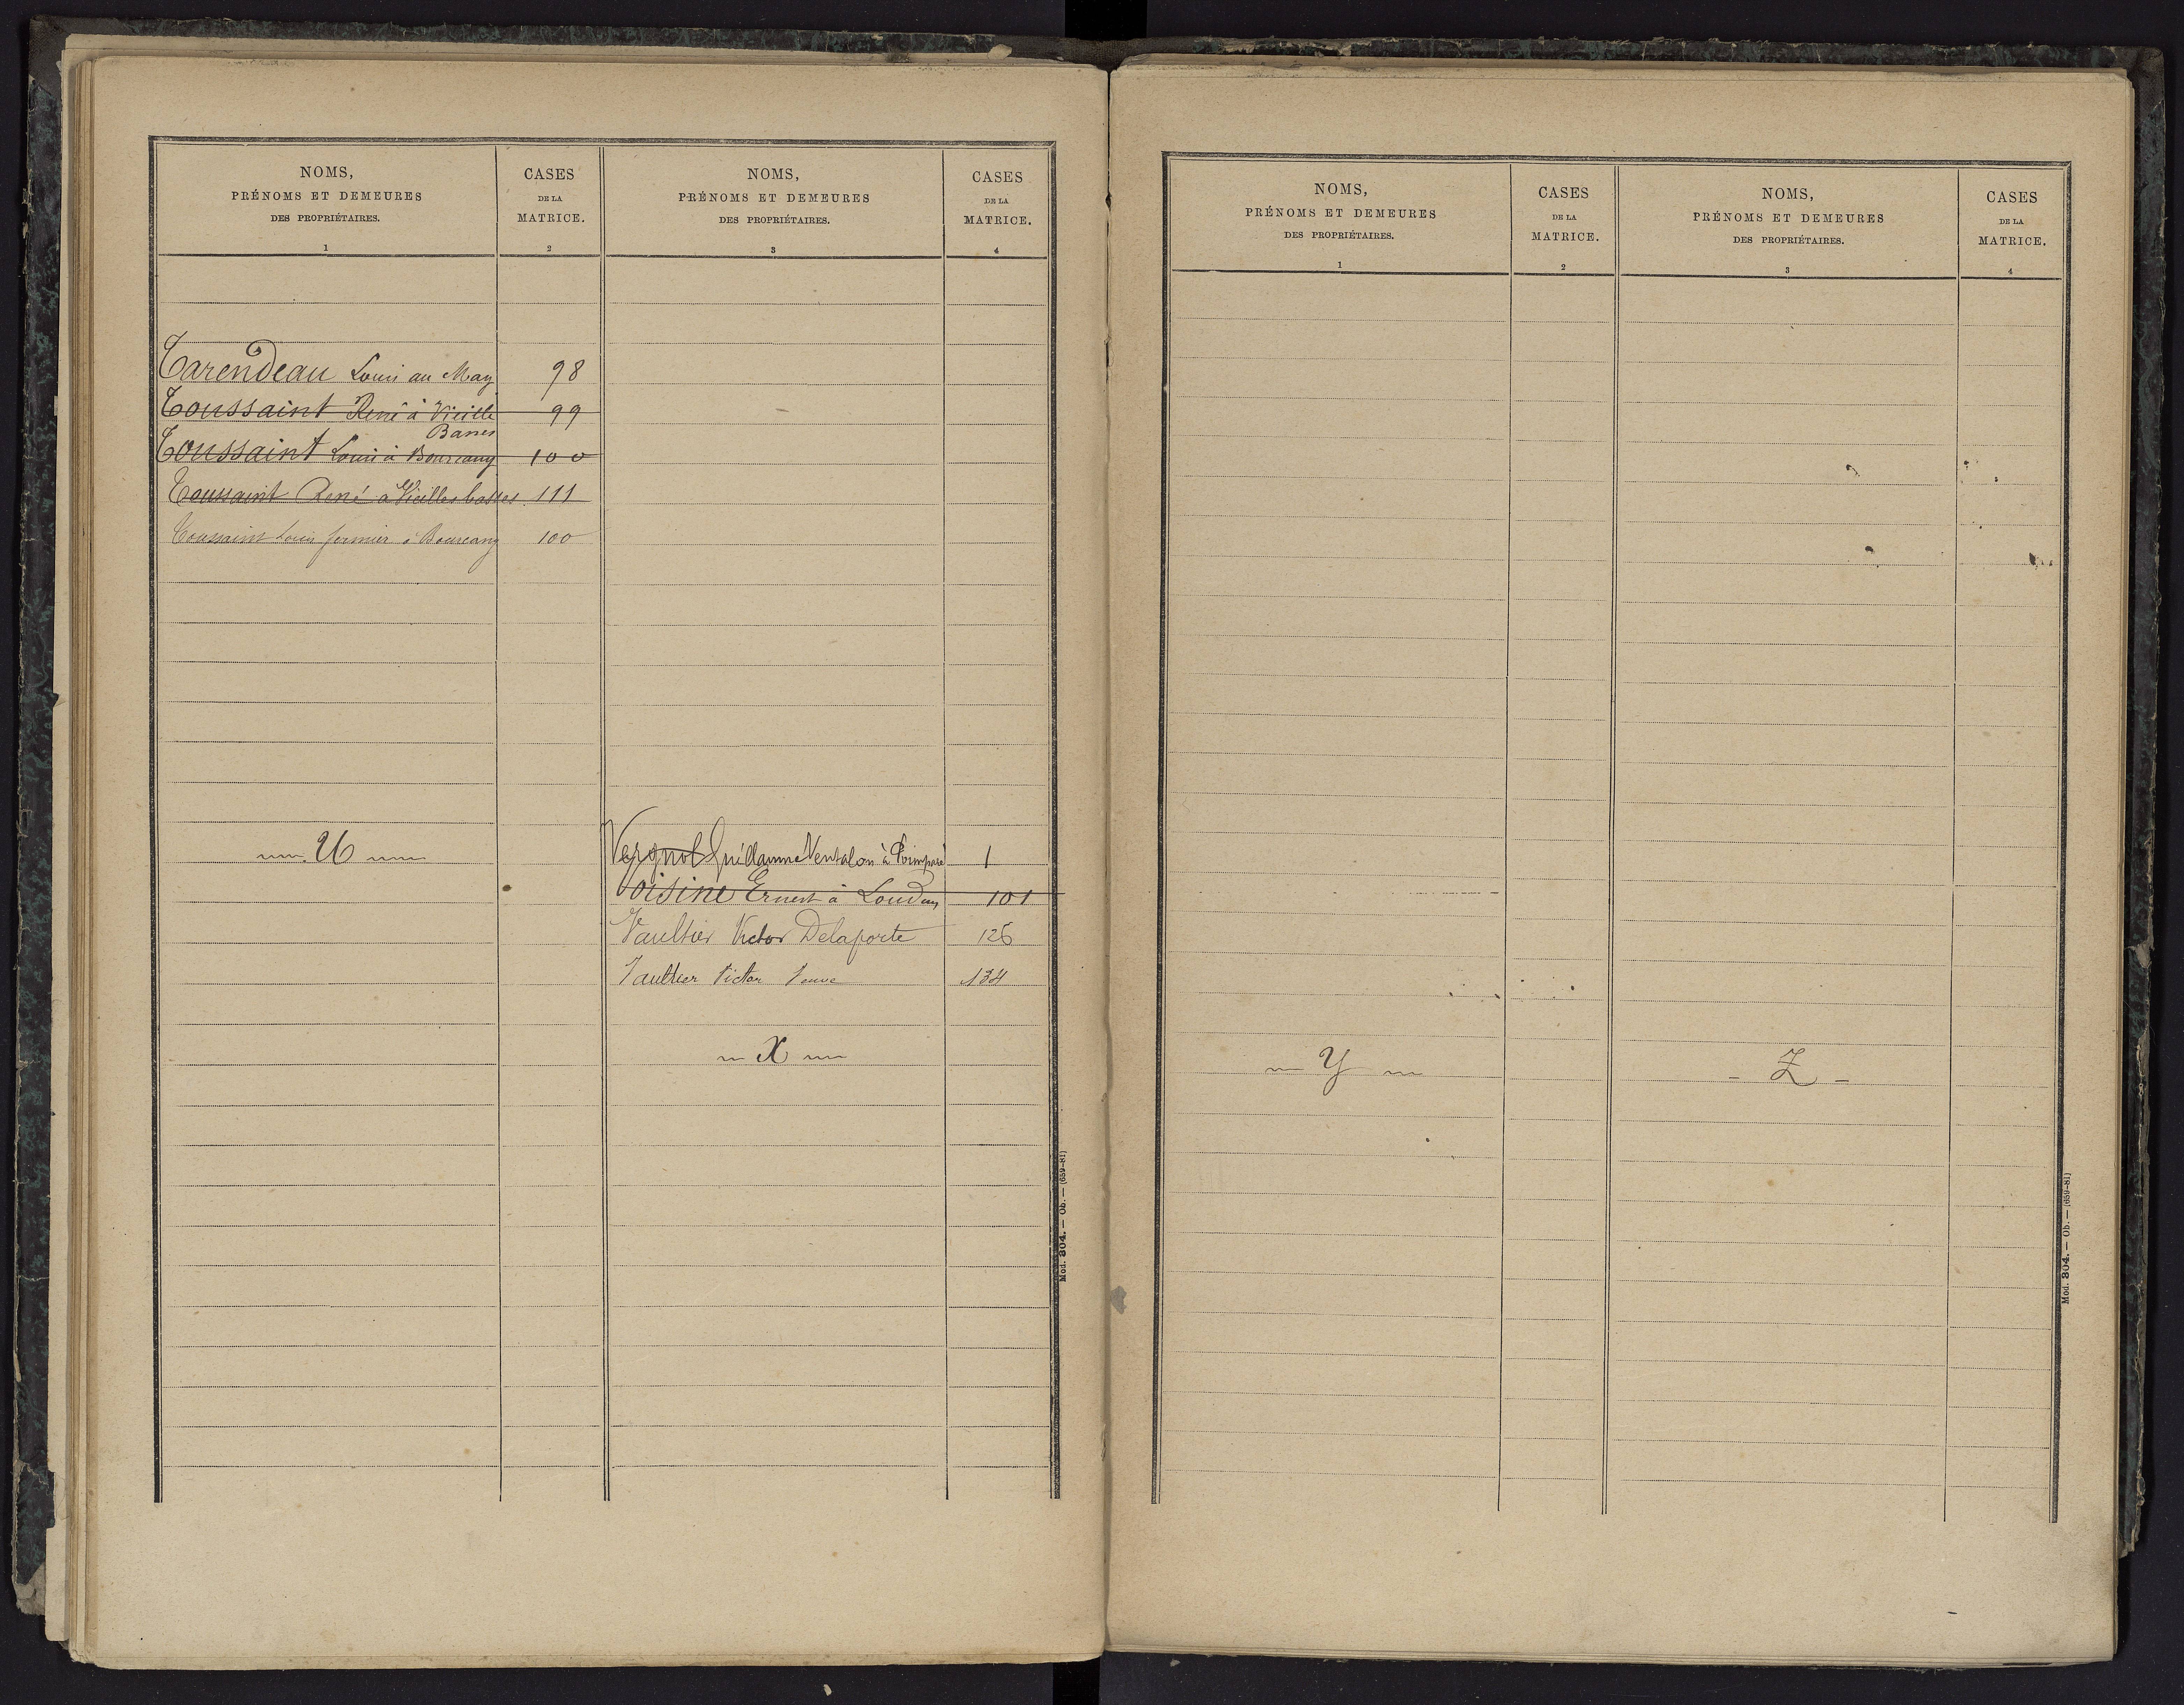 NOMS,
PRÉNOMS ET DEMEURES
DES PROPRIÉTAIRES.
1
CASES
DE LA
MATRICE.
2
Tarendeau Louis au May 98
Toussaint René à Vieille 99
Basses
Toussaint Louis à Bourcany 100
Toussaint René à Vieilles basses 111
Toussaint Louis fermier à Bourcany 100
U
NOMS,
PRÉNOMS ET DEMEURES
DES PROPRIÉTAIRES.
3
CASES
DE LA
MATRICE.
4
Vergnol Guillaume Ventalon à 1
Voisine Ernest à Loudun 101
Vaultier Victor Delaporte 126
Vaultier Victor Veuve 134
X
Mod. 304. — Ob. — (659-81)
NOMS,
PRÉNOMS ET DEMEURES
DES PROPRIÉTAIRES.
1
CASES
DE LA
MATRICE.
2
Y
NOMS,
PRÉNOMS ET DEMEURES
DES PROPRIÉTAIRES.
3
CASES
DE LA
MATRICE.
4
Z
Mod. 304. — Ob. — (659-81)